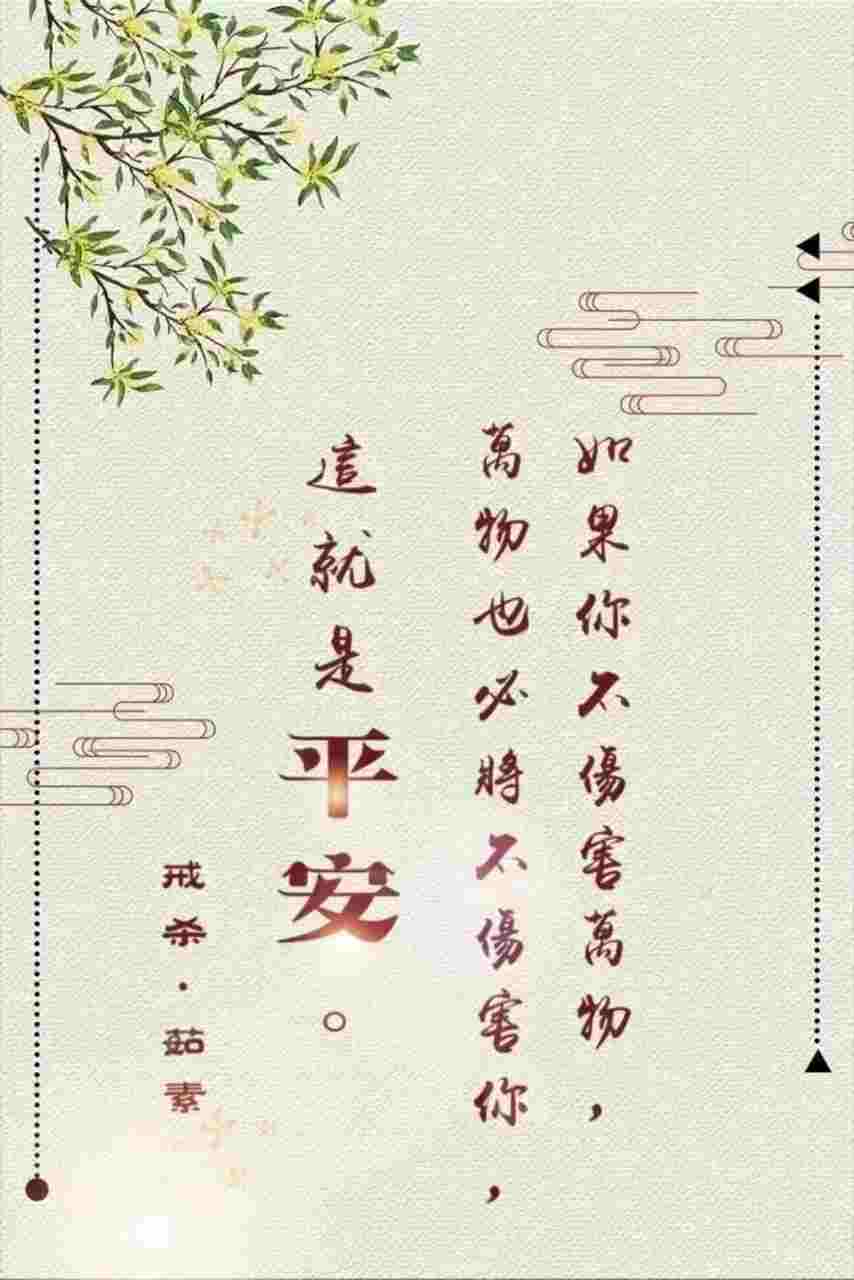 如果你不傷害萬物，
萬物也必將不傷害你，
這就是平安。
戒杀·茹素